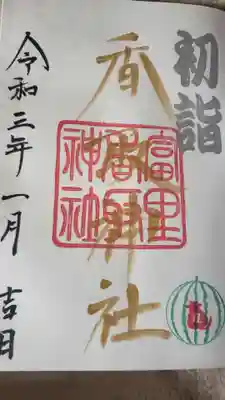 初詣
香取神社
富里
香取
神社
令和三年一月 吉日